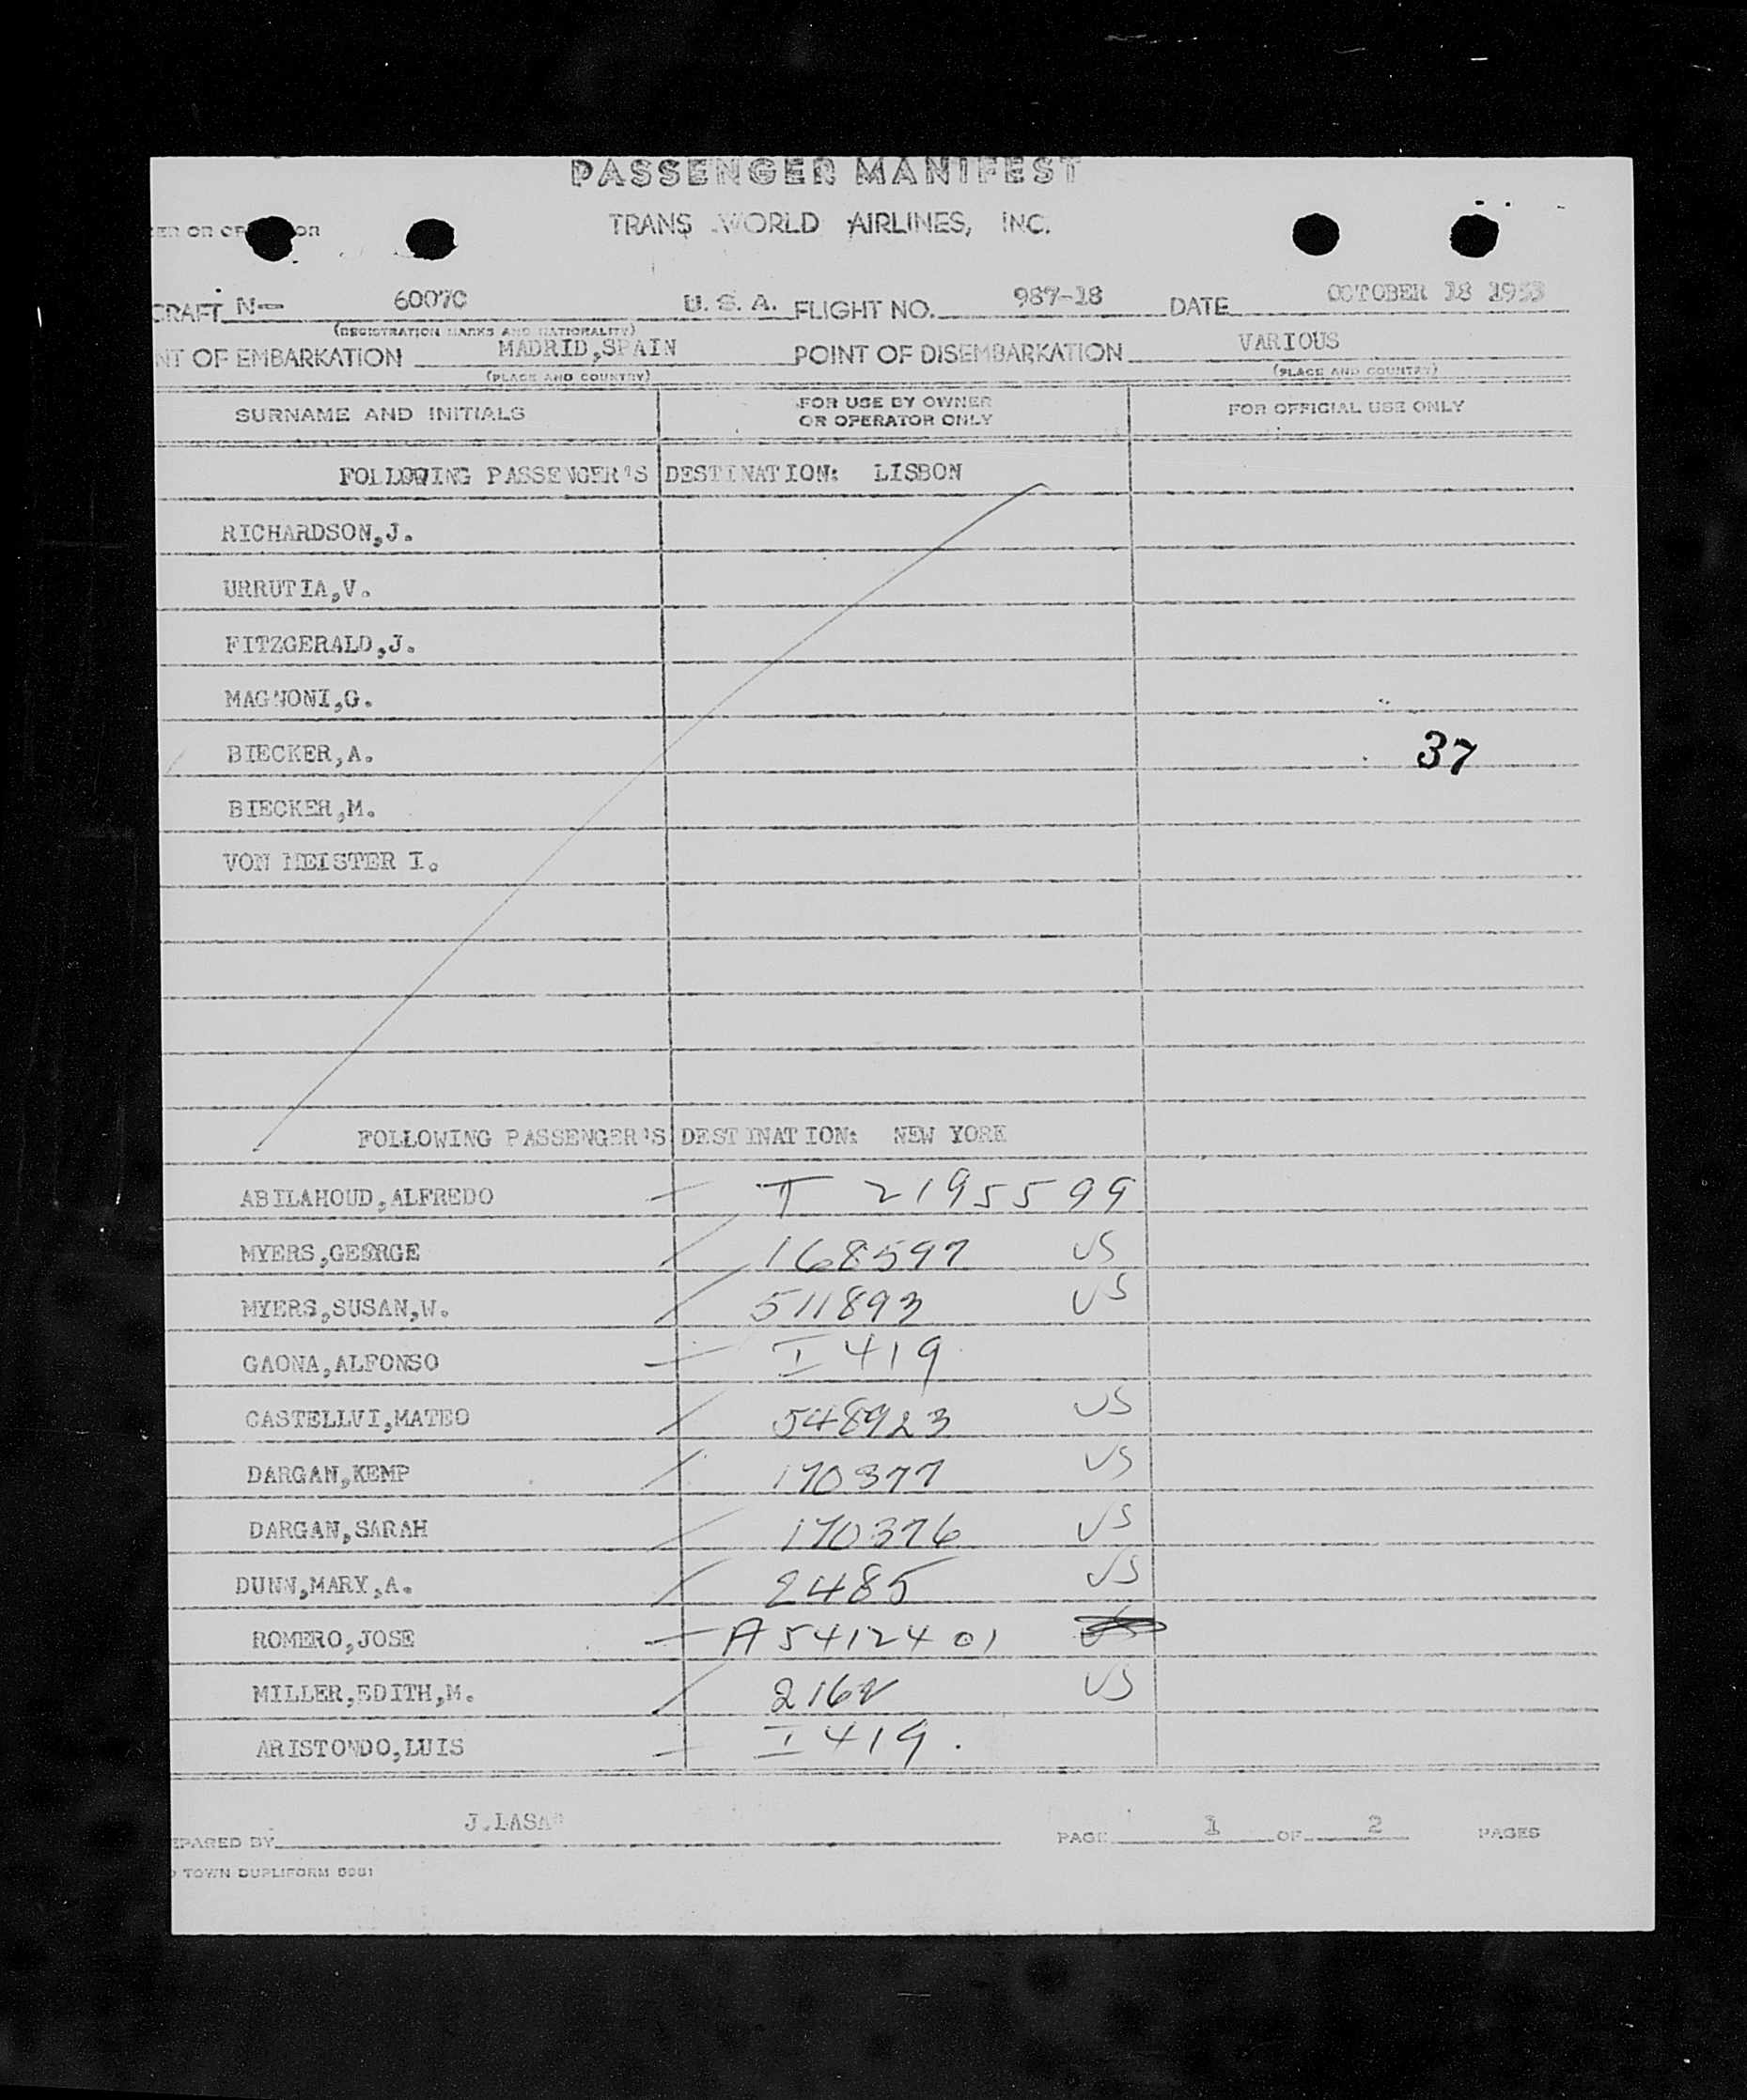 PASSENGER MANIFEST
TRANS WORLD AIRLINES, INC.
CRAFT N- 6007C U. S. A. FLIGHT NO. 987-18 DATE OCTOBER 18 1953
(REGISTRATION MARKS AND NATIONALITY)
NT OF EMBARKATION MADRID,SPAIN POINT OF DISEMBARKATION VARIOUS
(PLACE AND COUNTRY) (PLACE AND COUNTRY)
SURNAME AND INITIALS FOR USE BY OWNER OR OPERATOR ONLY FOR OFFICIAL USE ONLY
FOLLOWING PASSENGER'S DESTINATION: LISBON
RICHARDSON,J.
URRUTIA,V.
FITZGERALD,J.
MAGNONI,G.
BIECKER,A. 37
BIECKER,M.
VON MEISTER I.
FOLLOWING PASSENGER'S DESTINATION: NEW YORK
ABILAHOUD,ALFREDO T 2195599
MYERS,GEORGE 168597 US
MYERS,SUSAN,W. 511893 US
GAONA,ALFONSO I 419
CASTELLVI,MATEO 548923 US
DARGAN,KEMP 170377 US
DARGAN,SARAH 170376 US
DUNN,MARY,A. 2485 US
ROMERO,JOSE A5412401
MILLER,EDITH,M. 2162 US
ARISTONDO,LUIS I 419.
EPARED BY J.LASA PAGE 1 OF 2 PAGES
TOWN DUPLIFORM